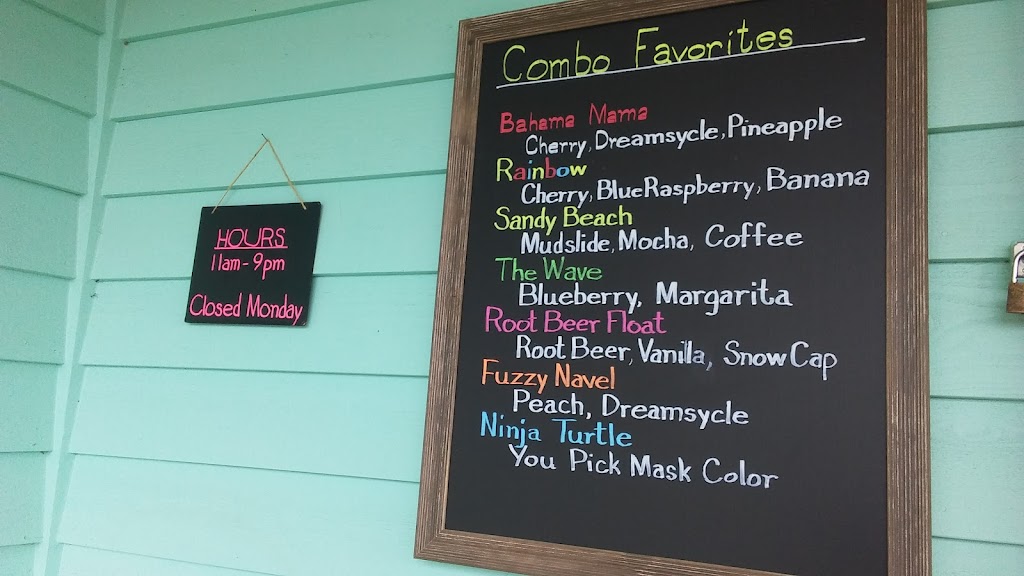 HOURS
11am - 9pm
Closed Monday
Combo Favorites
Bahama Mama
Cherry, Dreamsycle, Pineapple
Rainbow
Cherry, Blue Raspberry, Banana
Sandy Beach
Mudslide, Mocha, Coffee
The Wave
Blueberry, Margarita
Root Beer Float
Root Beer, Vanilla, Snow Cap
Fuzzy Navel
Peach, Dreamsycle
Ninja Turtle
You Pick Mask Color